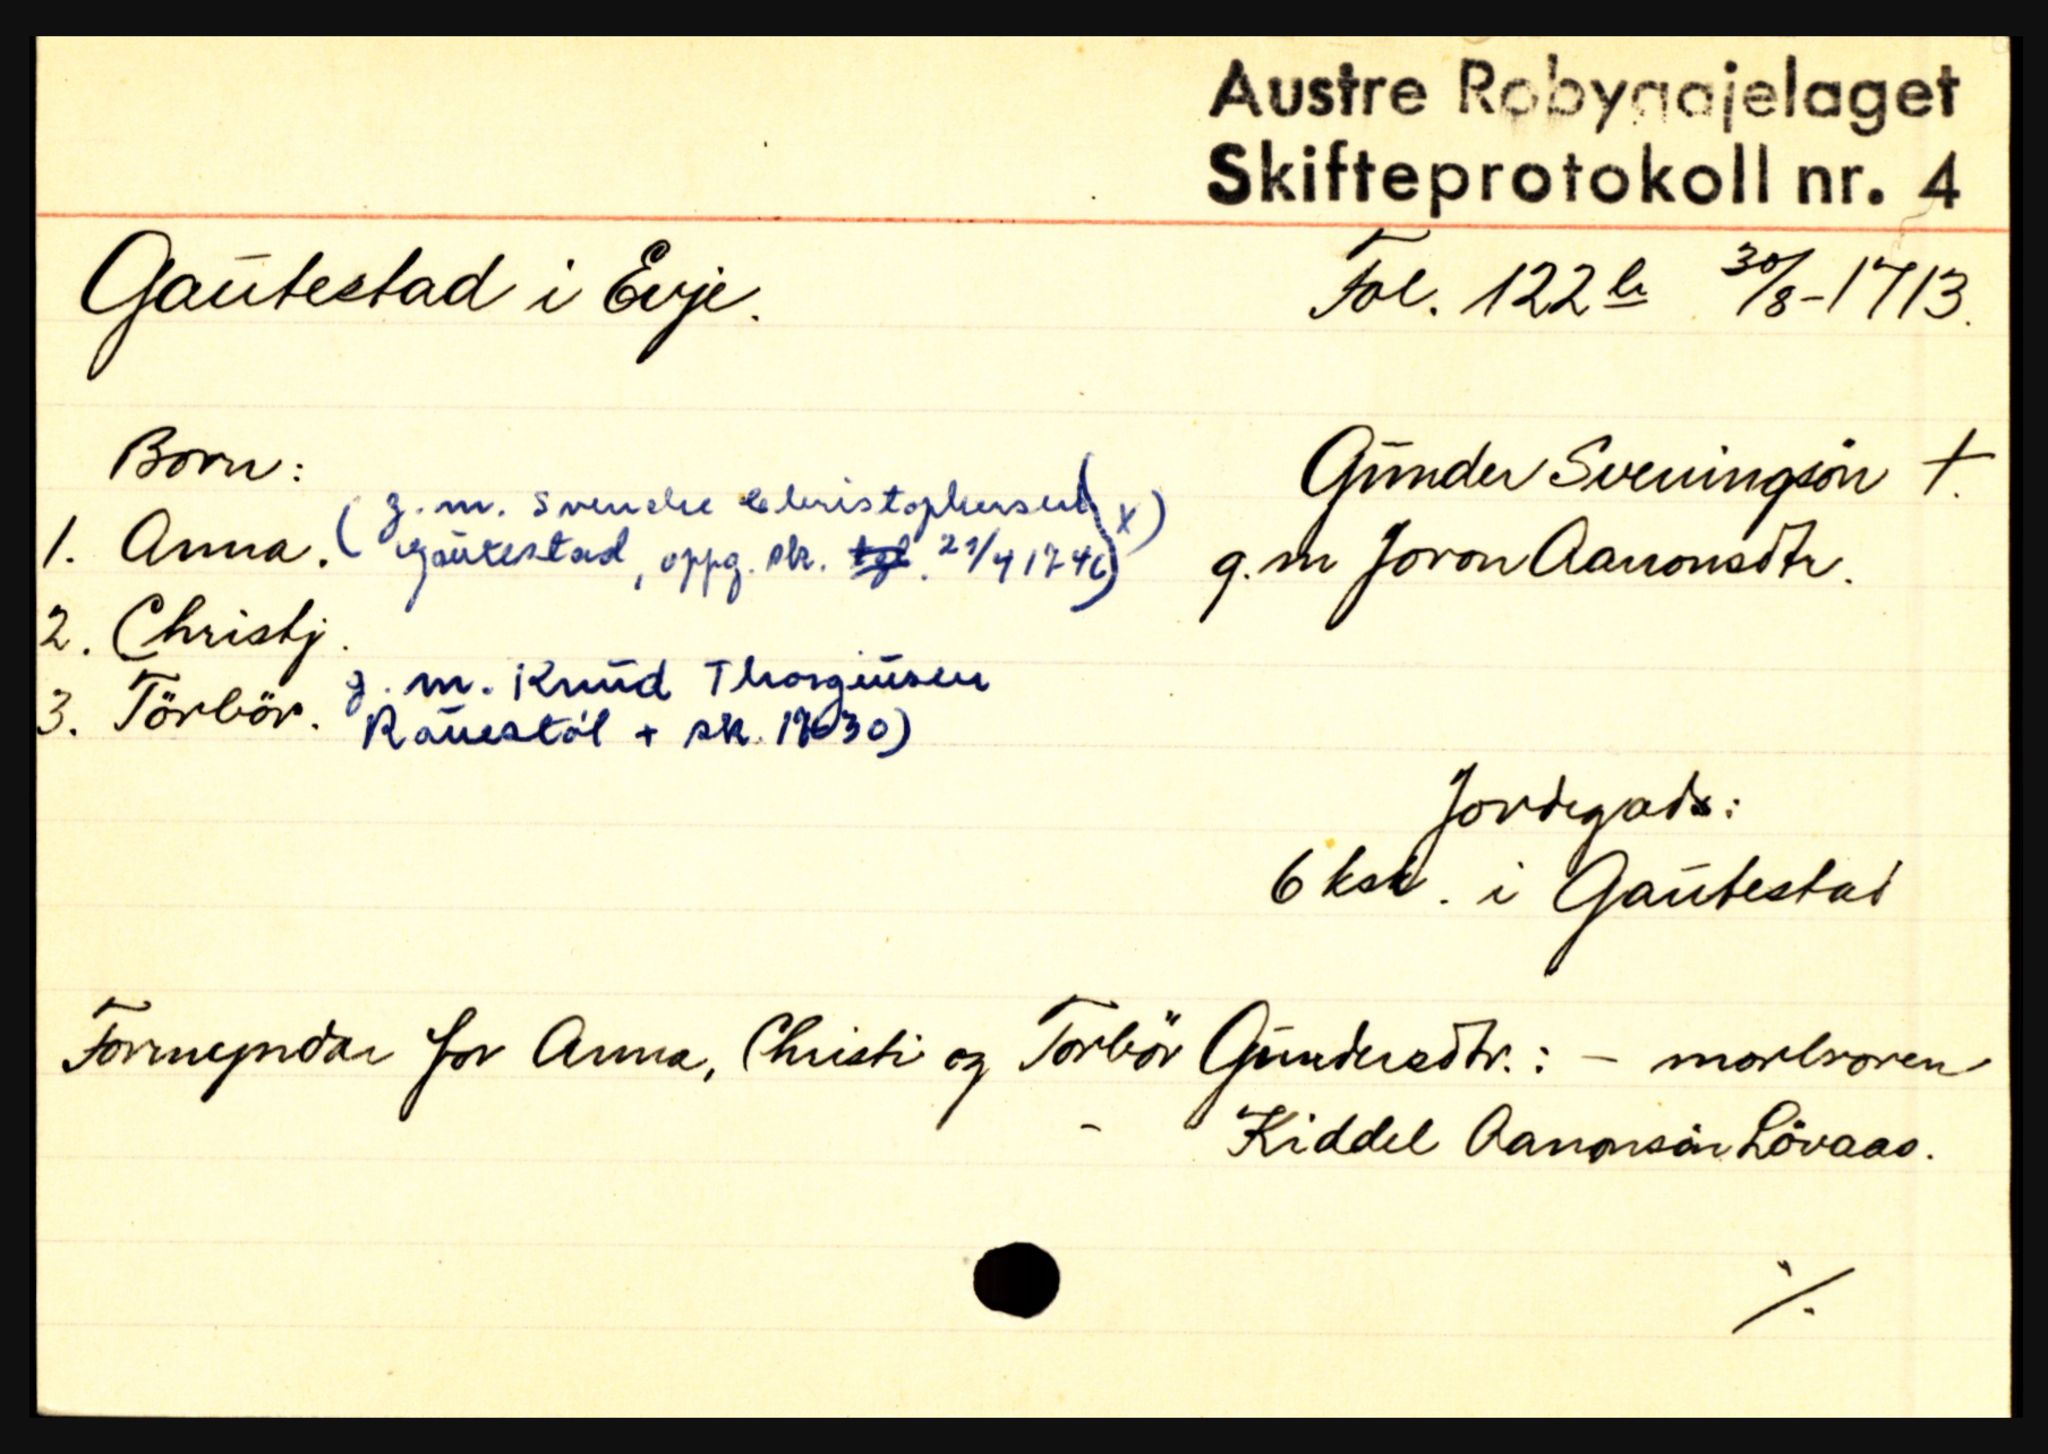 Austre Robyggjelaget
Skifteprotokoll nr. 4
Gautestad i Evje.
Fol. 122 b 30/8-1713.
Born:
Gunder Sveningsön +.
g.m Joron Aanonsdtr.
1. Anna. (g.m. Svenche Christophersen x)
Gautestad, oppg. sk. 21/4 1746)
2. Christj.
3. Törbör. g.m. Knud Thorgiusen
Rauestöl + sk. 1730)
Jordegods:
6 ksk. i Gautestad
Formyndar for Anna, Christi og Torbör Gundersdtr.: - morbroren
- Kiddel Aanonsön Lövaas.